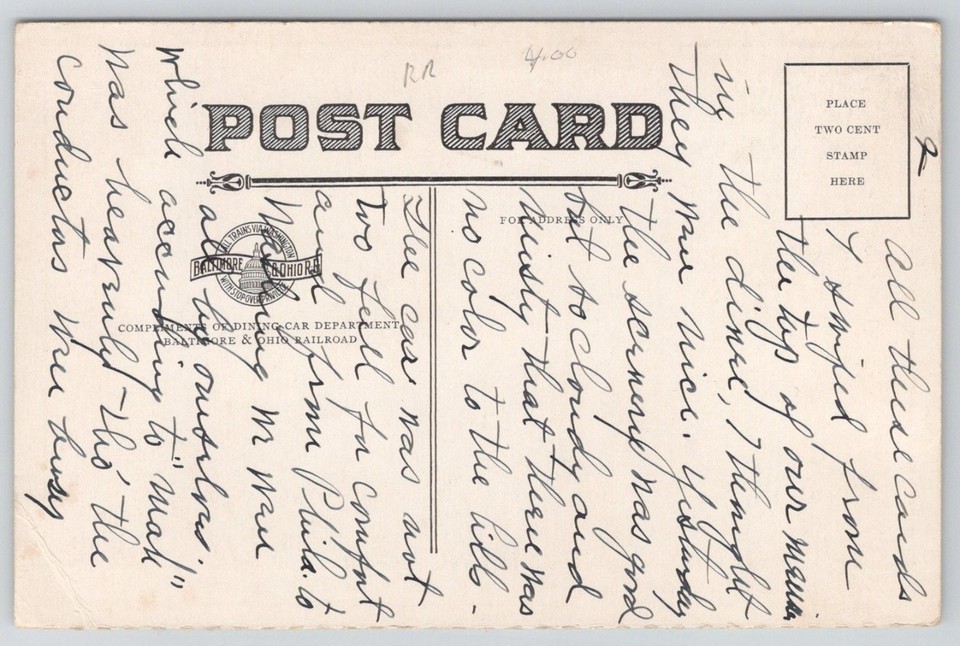 RR
4.00
POST CARD
PLACE
TWO CENT
STAMP
HERE
FOR ADDRESS ONLY
ALL TRAINS VIA WASHINGTON
BALTIMORE & OHIO R.R.
WITH STOPOVER PRIVILEGE
COMPLIMENTS OF DINING CAR DEPARTMENT
BALTIMORE & OHIO RAILROAD
2
All these cards
I swiped from
the top of our menus
in the diner, I thought
they were nice. Yesterday
the scenery was good
but so cloudy and
misty that there was
no color to the hills -
The car was not
too full for comfort
and from Phila. to
we were
all by ourselves
which according to "Mal"
was heavenly - tho' the
conductors were busy